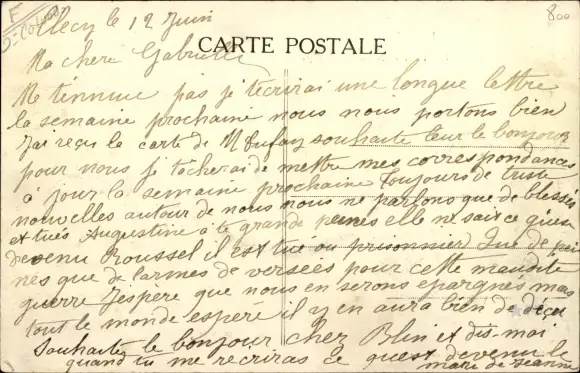 Clécy le 12 Juin
800
CARTE POSTALE
Ma chère Gabrielle
Ne t'ennuie pas je t'écrirai une longue lettre
la semaine prochaine nous nous portons bien
J'ai reçu la carte de M Dufay souhaite leur le bonjour
pour nous je tâcherai de mettre mes correspondances
à jour la semaine prochaine Toujours de triste
nouvelles autour de nous nous ne parlons que de blessés
et tués Augustine à le grande peines elle ne sait ce qu'est
devenu Roussel il est tué ou prisonnier Que de pei
nes que de larmes de versées pour cette maudite
guerre J'espère que nous en serons épargnés mais
tout le monde espéré il y en aura bien de déçu
Souhaite le bonjour chez Blin et dis-moi
quand tu me récriras ce qu'est devenu le
mari de Jeanne